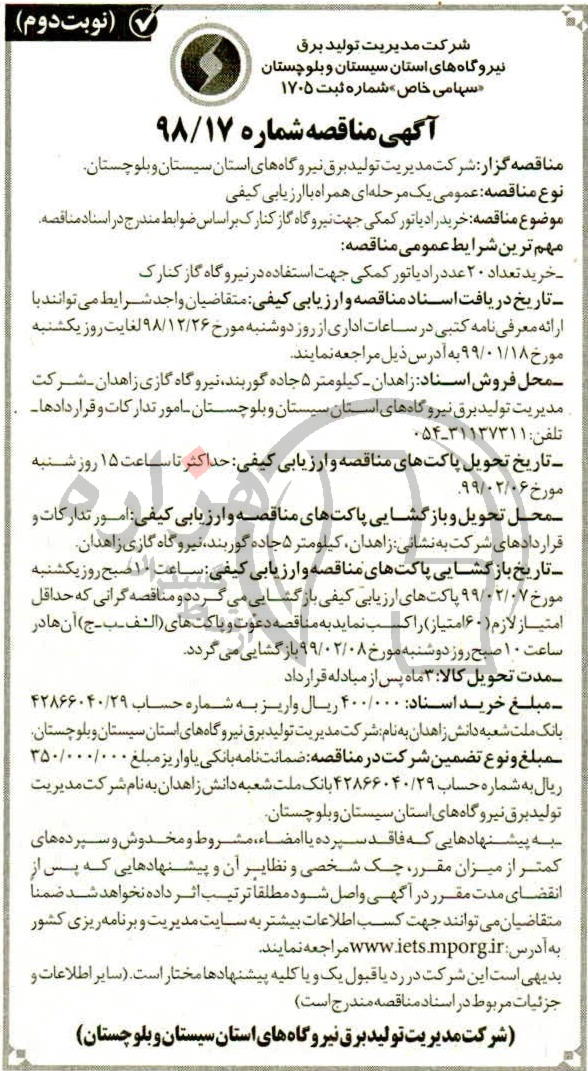 (نوبت دوم)
شرکت مدیریت تولید برق
نیروگاه‌های استان سیستان و بلوچستان
«سهامی خاص» شماره ثبت ۱۷۰۵
آگهی مناقصه شماره ۹۸/۱۷
مناقصه گزار: شرکت مدیریت تولید برق نیروگاه‌های استان سیستان و بلوچستان.
نوع مناقصه: عمومی یک مرحله‌ای همراه با ارزیابی کیفی
موضوع مناقصه: خرید رادیاتور کمکی جهت نیروگاه گاز کنارک براساس ضوابط مندرج در اسناد مناقصه.
مهم ترین شرایط عمومی مناقصه:
ـ خرید تعداد ۲۰ عدد رادیاتور کمکی جهت استفاده در نیروگاه گاز کنارک
ـ تاریخ دریافت اسناد مناقصه و ارزیابی کیفی: متقاضیان واجد شرایط می‌توانند با
ارائه معرفی نامه کتبی در ساعات اداری از روز دوشنبه مورخ ۹۸/۱۲/۲۶ لغایت روز یکشنبه
مورخ ۹۹/۰۱/۱۸ به آدرس ذیل مراجعه نمایند.
ـ محل فروش اسناد: زاهدان ـ کیلومتر ۵ جاده گوربند، نیروگاه گازی زاهدان ـ شرکت
مدیریت تولید برق نیروگاه‌های استان سیستان و بلوچستان ـ امور تدارکات و قراردادها ـ
تلفن: ۳۱۱۳۷۳۱۱ـ۰۵۴
ـ تاریخ تحویل پاکت‌های مناقصه و ارزیابی کیفی: حداکثر تا ساعت ۱۵ روز شنبه
مورخ ۹۹/۰۲/۰۶.
ـ محل تحویل و بازگشایی پاکت‌های مناقصه و ارزیابی کیفی: امور تدارکات و
قراردادهای شرکت به نشانی: زاهدان، کیلومتر ۵ جاده گوربند، نیروگاه گازی زاهدان.
ـ تاریخ بازگشایی پاکت‌های مناقصه و ارزیابی کیفی: ساعت ۱۰ صبح روز یکشنبه
مورخ ۹۹/۰۲/۰۷ پاکت‌های ارزیابی کیفی بازگشایی می‌گردد و مناقصه گرانی که حداقل
امتیاز لازم (۶۰ امتیاز) را کسب نماید به مناقصه دعوت و پاکت‌های (الف ـ ب ـ ج) آن‌ها در
ساعت ۱۰ صبح روز دوشنبه مورخ ۹۹/۰۲/۰۸ بازگشایی می‌گردد.
ـ مدت تحویل کالا: ۳ ماه پس از مبادله قرارداد
ـ مبلغ خرید اسناد: ۴۰۰/۰۰۰ ریال واریز به شماره حساب ۴۲۸۶۶۰۴۰/۲۹
بانک ملت شعبه دانش زاهدان به نام: شرکت مدیریت تولید برق نیروگاه‌های استان سیستان و بلوچستان.
ـ مبلغ و نوع تضمین شرکت در مناقصه: ضمانت نامه بانکی یا واریز مبلغ ۳۵۰/۰۰۰/۰۰۰
ریال به شماره حساب ۴۲۸۶۶۰۴۰/۲۹ بانک ملت شعبه دانش زاهدان به نام شرکت مدیریت
تولید برق نیروگاه‌های استان سیستان و بلوچستان.
ـ به پیشنهادهایی که فاقد سپرده یا امضاء، مشروط و مخدوش و سپرده‌های
کمتر از میزان مقرر، چک شخصی و نظایر آن و پیشنهادهایی که پس از
انقضای مدت مقرر در آگهی واصل شود مطلقا ترتیب اثر داده نخواهد شد ضمناً
متقاضیان می‌توانند جهت کسب اطلاعات بیشتر به سایت مدیریت و برنامه ریزی کشور
به آدرس: www.iets.mporg.ir مراجعه نمایند.
بدیهی است این شرکت در رد یا قبول یک و یا کلیه پیشنهادها مختار است. (سایر اطلاعات و
جزئیات مربوط در اسناد مناقصه مندرج است)
(شرکت مدیریت تولید برق نیروگاه‌های استان سیستان و بلوچستان)
هزاره